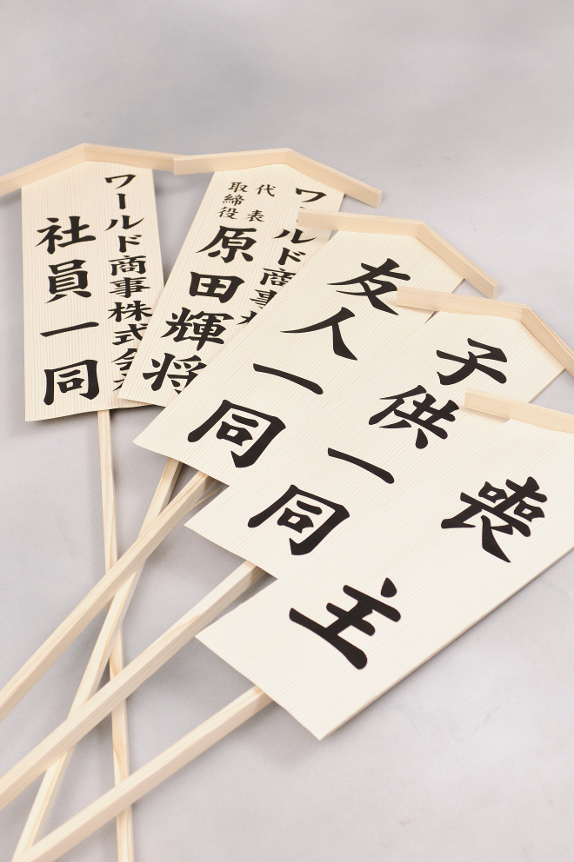 ワールド商事株式会社
社員一同
ワールド商事
代表
取締役
原田輝将
友人一同
子供一同
喪主